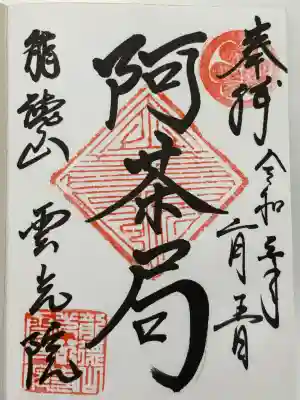 奉拝
令和年月五日
阿茶局
龍徳山 雲光院